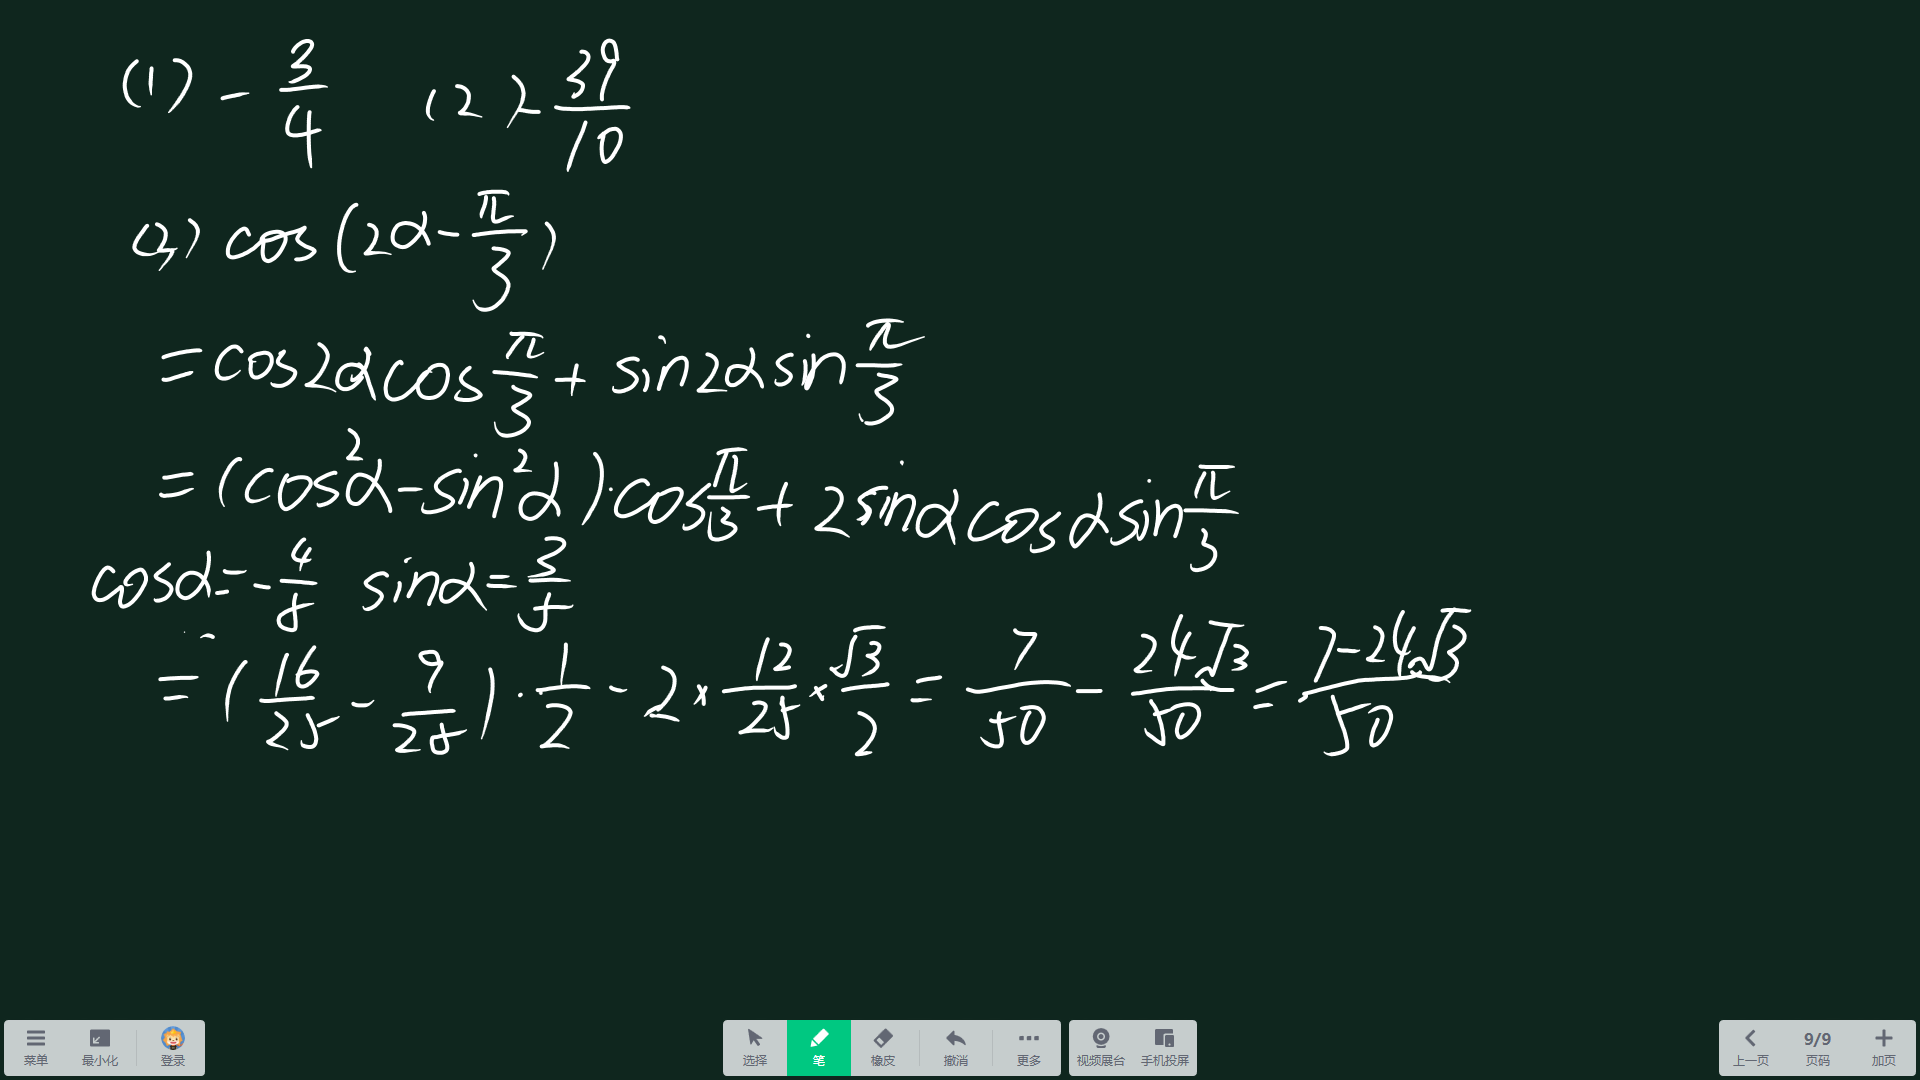 (1) -3/4 (2) -39/10
(3) cos(2α-π/3)
=cos2αcosπ/3+sin2αsinπ/3
=(cos²α-sin²α)·cosπ/3+2sinαcosαsinπ/3
cosα=-4/5 sinα=3/5
=(16/25-9/25)·1/2-2×12/25×√3/2=7/50-24√3/50=7-24√3/50
菜单 最小化 登录 选择 笔 橡皮 撤消 更多 视频展台 手机投屏 上一页 9/9 页码 加页